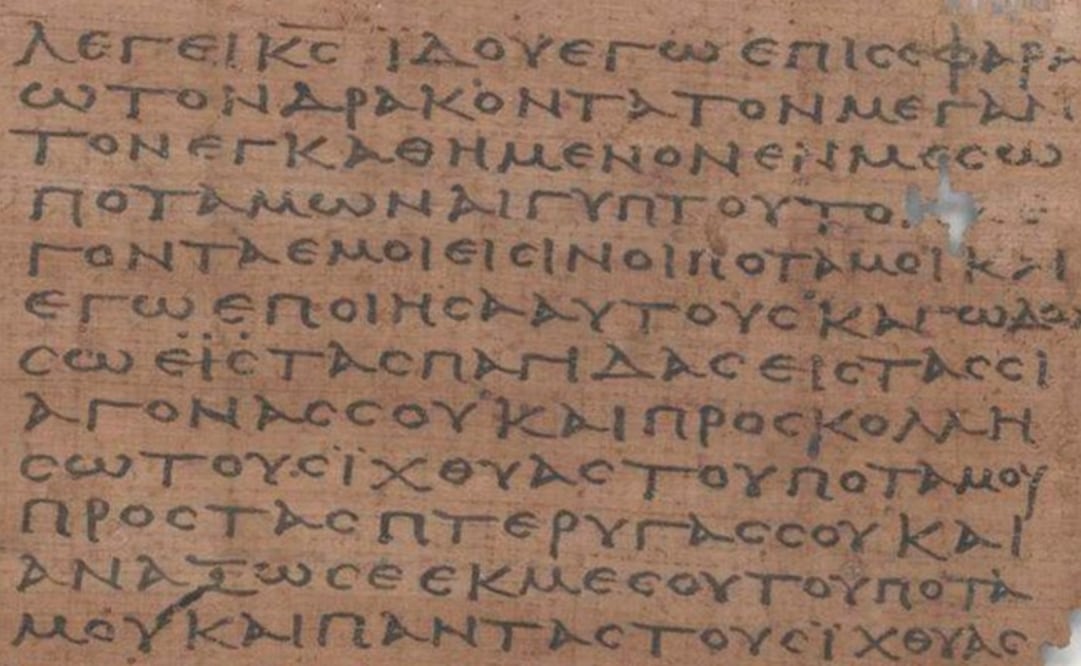 ΛΕΓΕΙ Κ̅Ϲ̅ ΪΔΟΥ ΕΓΩ ΕΠΙ ϹΕ ΦΑΡΑ
Ω ΤΟΝ ΔΡΑΚΟΝΤΑ ΤΟΝ ΜΕΓΑΝ
ΤΟΝ ΕΓΚΑΘΗΜΕΝΟΝ ΕΝ ΜΕϹΩ
ΠΟΤΑΜΩΝ ΑΙΓΥΠΤΟΥ
ΓΟΝΤΑ ΕΜΟΙ ΕΙϹΙΝ ΟΙ ΠΟΤΑΜΟΙ ΚΑΙ
ΕΓΩ ΕΠΟΙΗϹΑ ΑΥΤΟΥϹ ΚΑΓΩ ΔΩ
ϹΩ ΕΙϹ ΤΑϹ ΠΑΓΙΔΑϹ ΕΙϹ ΤΑϹ ϹΙ
ΑΓΟΝΑϹ ϹΟΥ ΚΑΙ ΠΡΟϹΚΟΛΛΗ
ϹΩ ΤΟΥϹ ΪΧΘΥΑϹ ΤΟΥ ΠΟΤΑΜΟΥ
ΠΡΟϹ ΤΑϹ ΠΤΕΡΥΓΑϹ ϹΟΥ ΚΑΙ
ΑΝΑΞΩ ϹΕ ΕΚ ΜΕϹΟΥ ΤΟΥ ΠΟΤΑ
ΜΟΥ ΚΑΙ ΠΑΝΤΑϹ ΤΟΥϹ ΪΧΘΥΑϹ